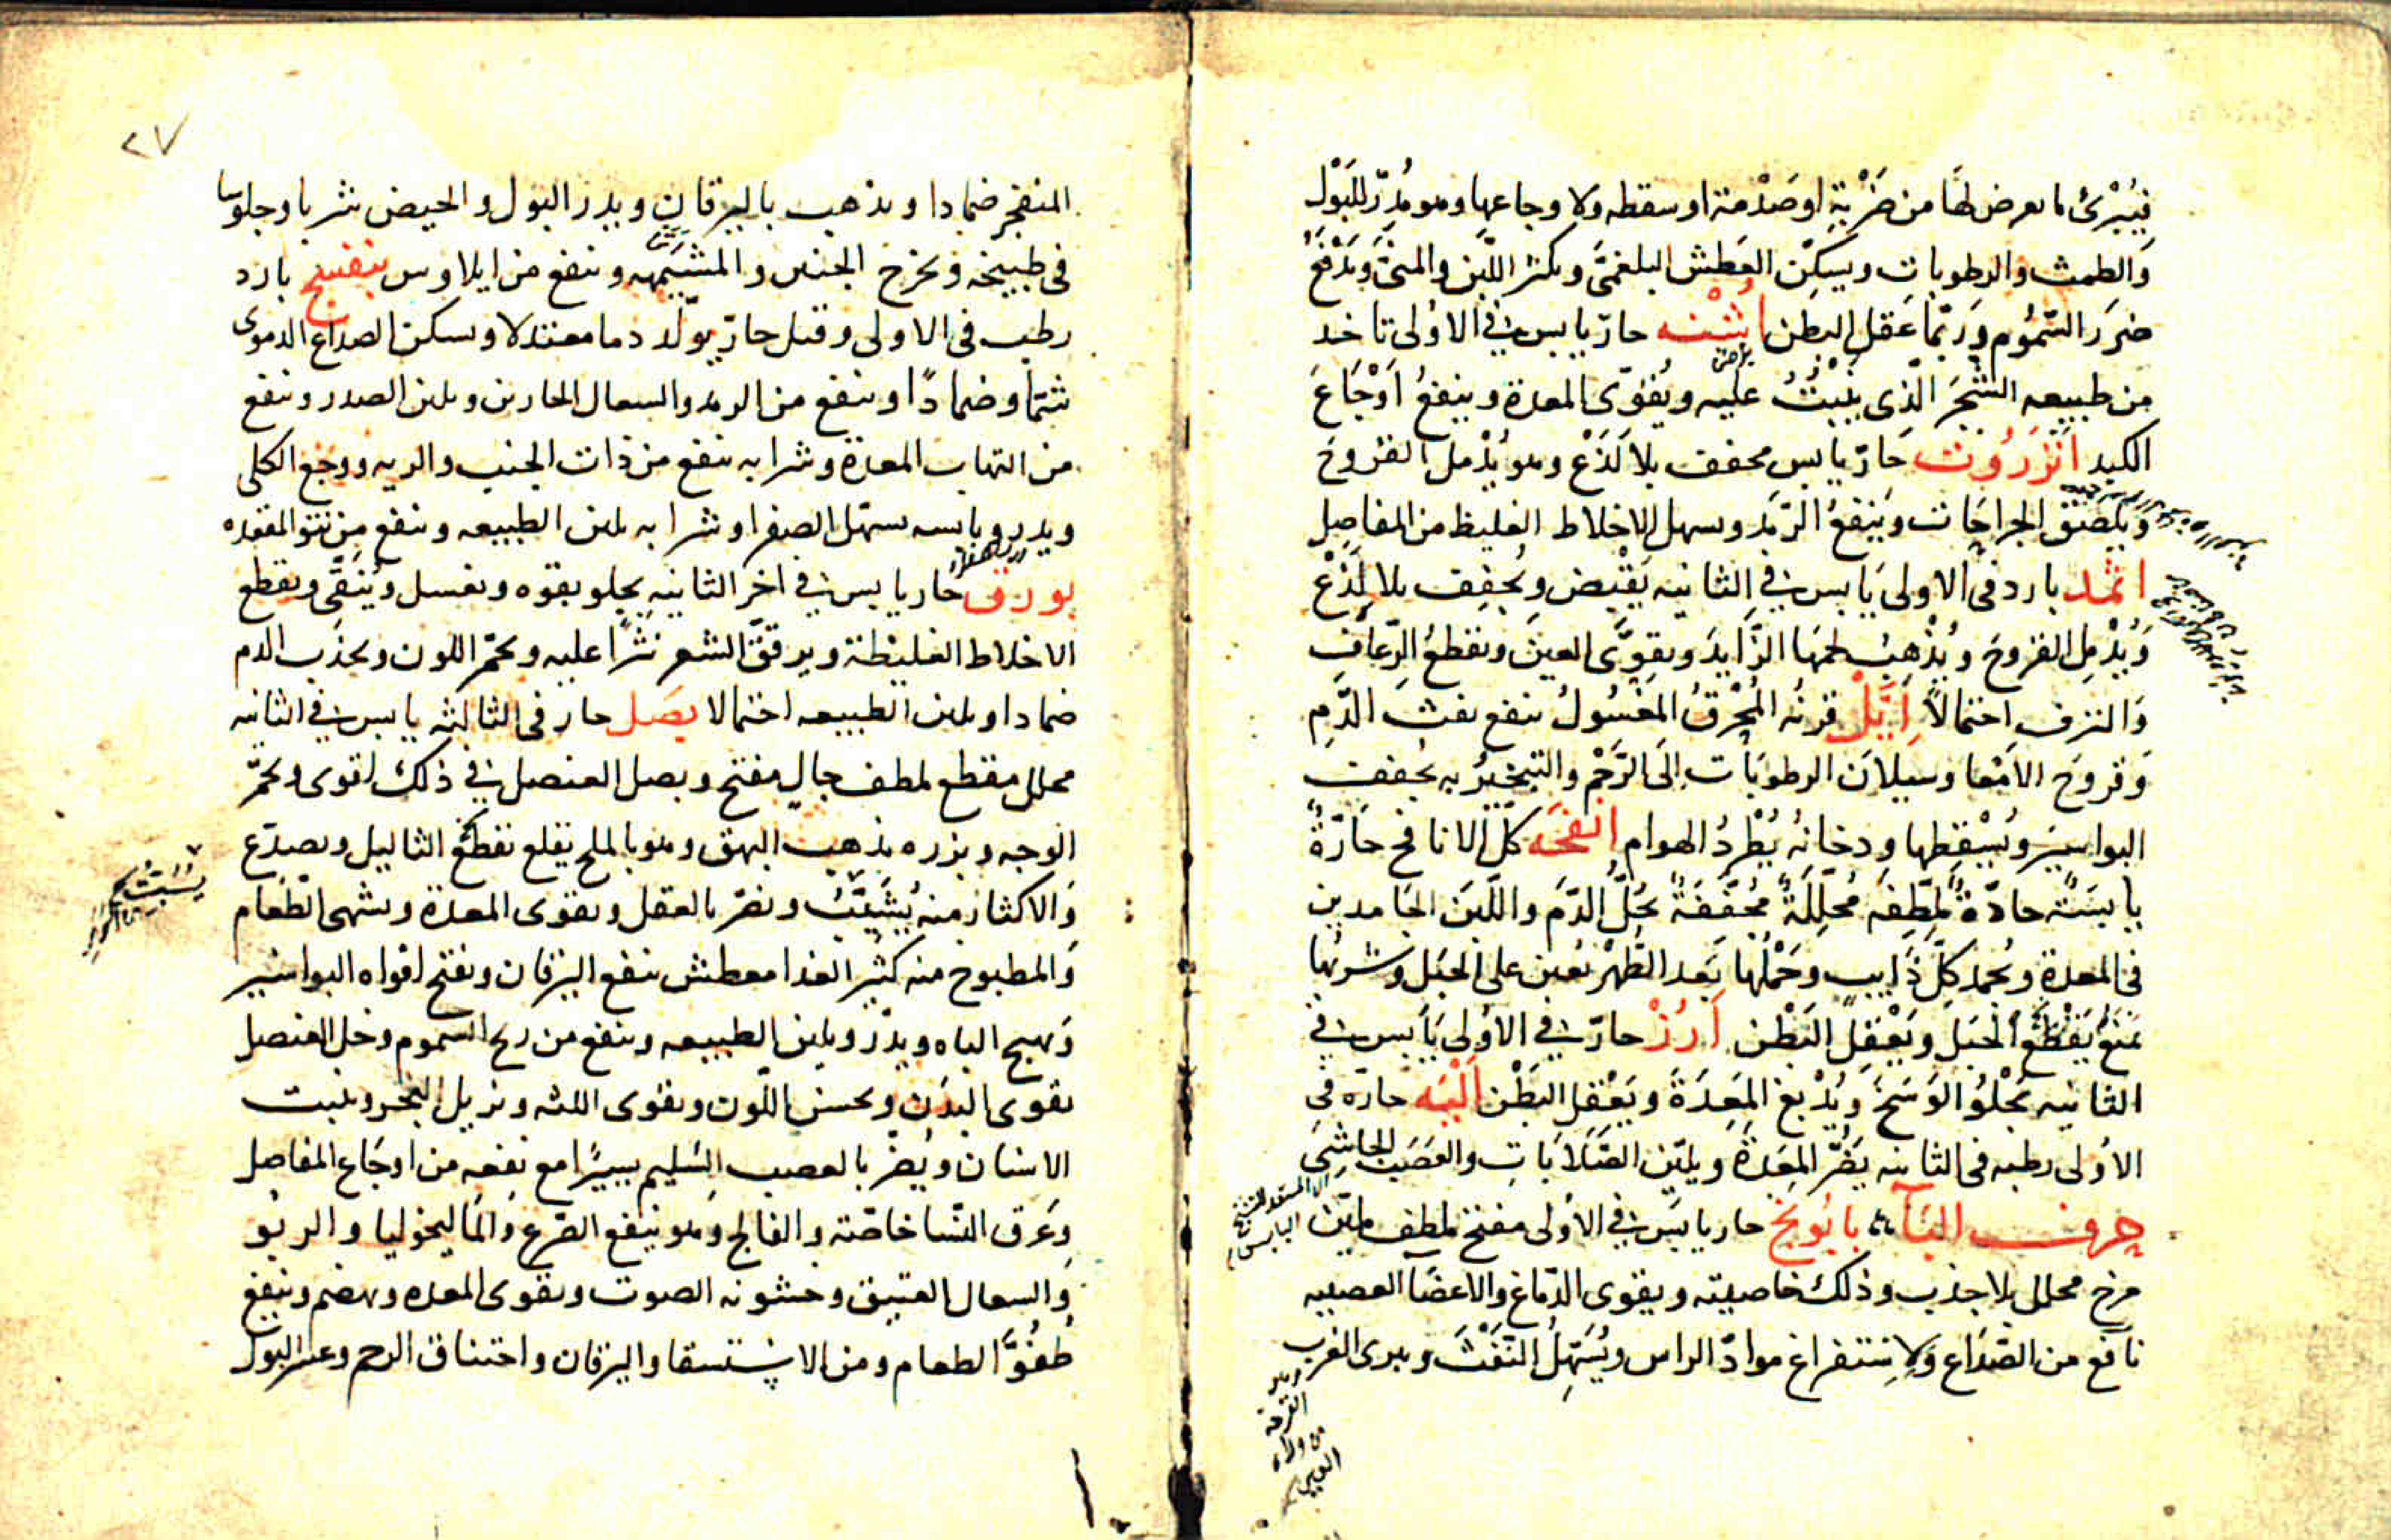 فيُبْرئ ما يعرض لها من ضَرْبةٍ او صَدْمة او سقطه ولاوجاعها وهو مُدِرّ للبَوْل
وَالطمث والرطوبات ويسكِّن العَطش البلغميّ ويكثر اللّبن والمنىّ وَيَدْفَعُ
ضرَر السّمُوم وَربّما عَقل البطن اُشْنه حارّ يابس في الاوُلى تاخد
من طبيعه الشجَر الّذى يَنْبُتُ عليه ويُقوّى المعدة وينفعُ اَوْجَاعَ
الكبد اَنْزَرُوت حَارّ يابس مجفف بلا لَذْع وهو يُدْمل القُرُوحَ
وَيلصق الجراحَات وَيَنفعُ الرَّمَد ويسهل الاخلاط الغليظ من المفاصِل
اثمْد بارد فى الاولى يَابس في الثانيه يَقْبض ويُجفف بلا لَذْع
وَيُدْمِل القروحَ ويُذْهِبُ لحمَهَا الزَّايدَ ويقوّى العينَ ويقطعُ الرّعَافَ
وَالنزف احتمالاً اِيَّل قرنُه المُحْرَقُ المغسُولُ ينفع نفث الدَّمِ
وَقروحَ الاَمْعا وسيلاَن الرطوبَات اِلَى الرَّحْم والتبخيُر به يجفف
البواسيَر ويُسْقِطها ودخانُه يُطْردُ الهوام انفحَه كلّ الانافح حَارّةٌ
يابسَة حادّةٌ مُلطّفِه مُحَلِّلَةٌ مُجَفّفَةٌ يحُلّ الدَّمَ واللّبَن الجَامدين
فى المعدة ويُجمد كلّ ذَايب وَحَمْلُهَا بَعد الطُّهرْ يُعين على الحَبَل وشربُها
يمَنعُ يَقْطَعُ الحَبَلَ ويَعْقِل البَطْن اَرُزْ حارّ في الاوُلى يَابس في
الثانيه يَجْلوُ الوَسَخَ ويُدْبغ المَعِدَةَ ويَعْقِل البَطْن اَلْيَه حارّه فى
الاوُلى رطبه فى الثانيه يَضُرّ المَعِدَةَ ويليّن الصَّلاَبَاتِ والعَصَبَ الجَاسِىَ
حرف البَآء بابُونج حار يابسَ في الاوُلى مفتح ملطف مليّن
مرخ محلل بلا جذب وذلك خاصيته ويقوى الدّماغ والاعضَا العصبيه
نافع من الصّدَاع وَلاِستفراغ موادّ الراس ويُسَهِّلُ النَّفْثَ ويبرى الغرب
القرحة
المنفجر ضمادا ويذهب باليرقان ويدر البول والحيض شربا وجلوسا
فى طبيخه ويخرج الجنين والمشيمه وينفع من ايلاوس بنفسج بارد
رطب فى الاولى وقيل حارّ يولّد دما معتدلا ويسكن الصداع الدموى
شمّا وضمادًا وينفع من الرمد والسعال الحارين ويلين الصدر وينفع
من التهاب المعدة وشرابه ينفع من ذات الجنب والريه ووجع الكلى
ويدر ويابسه يسهّل الصفرا وشرابه يلين الطبيعه وينفع من نتو المقعده
بورق حار يابس في اخر الثانيه يجلو بقوه ويغسل ويُنقّى ويقطع
الاخلاط الغليظة ويرقق الشعر نثرًا عليه ويحمّر اللون ويجذب الدم
ضمادا ويلين الطبيعه احتمالا بصَل حار فى الثالثه يابس في الثانيه
محلل مقطع ملطف جالٍ مفتح وبصل العنصل في ذلك اقوى ويحمّر
الوجه وبزره يذهب البهق وهو بالملح يقلع يقطع الثاليل ويصدّع
وَالاكثار منه يُسْبِتُ ويضرّ بالعقل ويقوى المعدة ويشهى الطعام
يُسْبِتُ
وَالمطبوخ منه كثير الغدا معطش ينفع اليرقان ويفتح افواه البواسير
وَيهيج الباه ويدّر ويلين الطبيعه وينفع من ريح السموم وخل العنصل
يقوى البدَن ويحسن اللّون ويقوى اللثه ويزيل البَخَر ويثبت
الاسنان ويُضرّ بالعصب السَليم يسيرًا مع نفعه من اوجَاع المفاصل
وعَرق النّسا خاصّته والفالج وهو ينفع الصّرع وَالمَاليخوليا والربو
وَالسعال العتيق وخشونه الصوت ويقوى المعده ويهضم وينفع
طُفُوَّ الطعام ومن الاستسقا واليرقان واختناق الرحم وعسر البول
٢٧